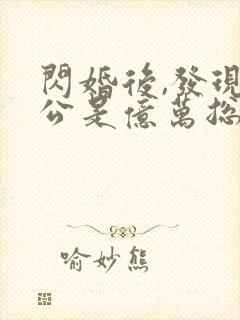 閃婚後,發現
公是億萬捴
喻妙熊